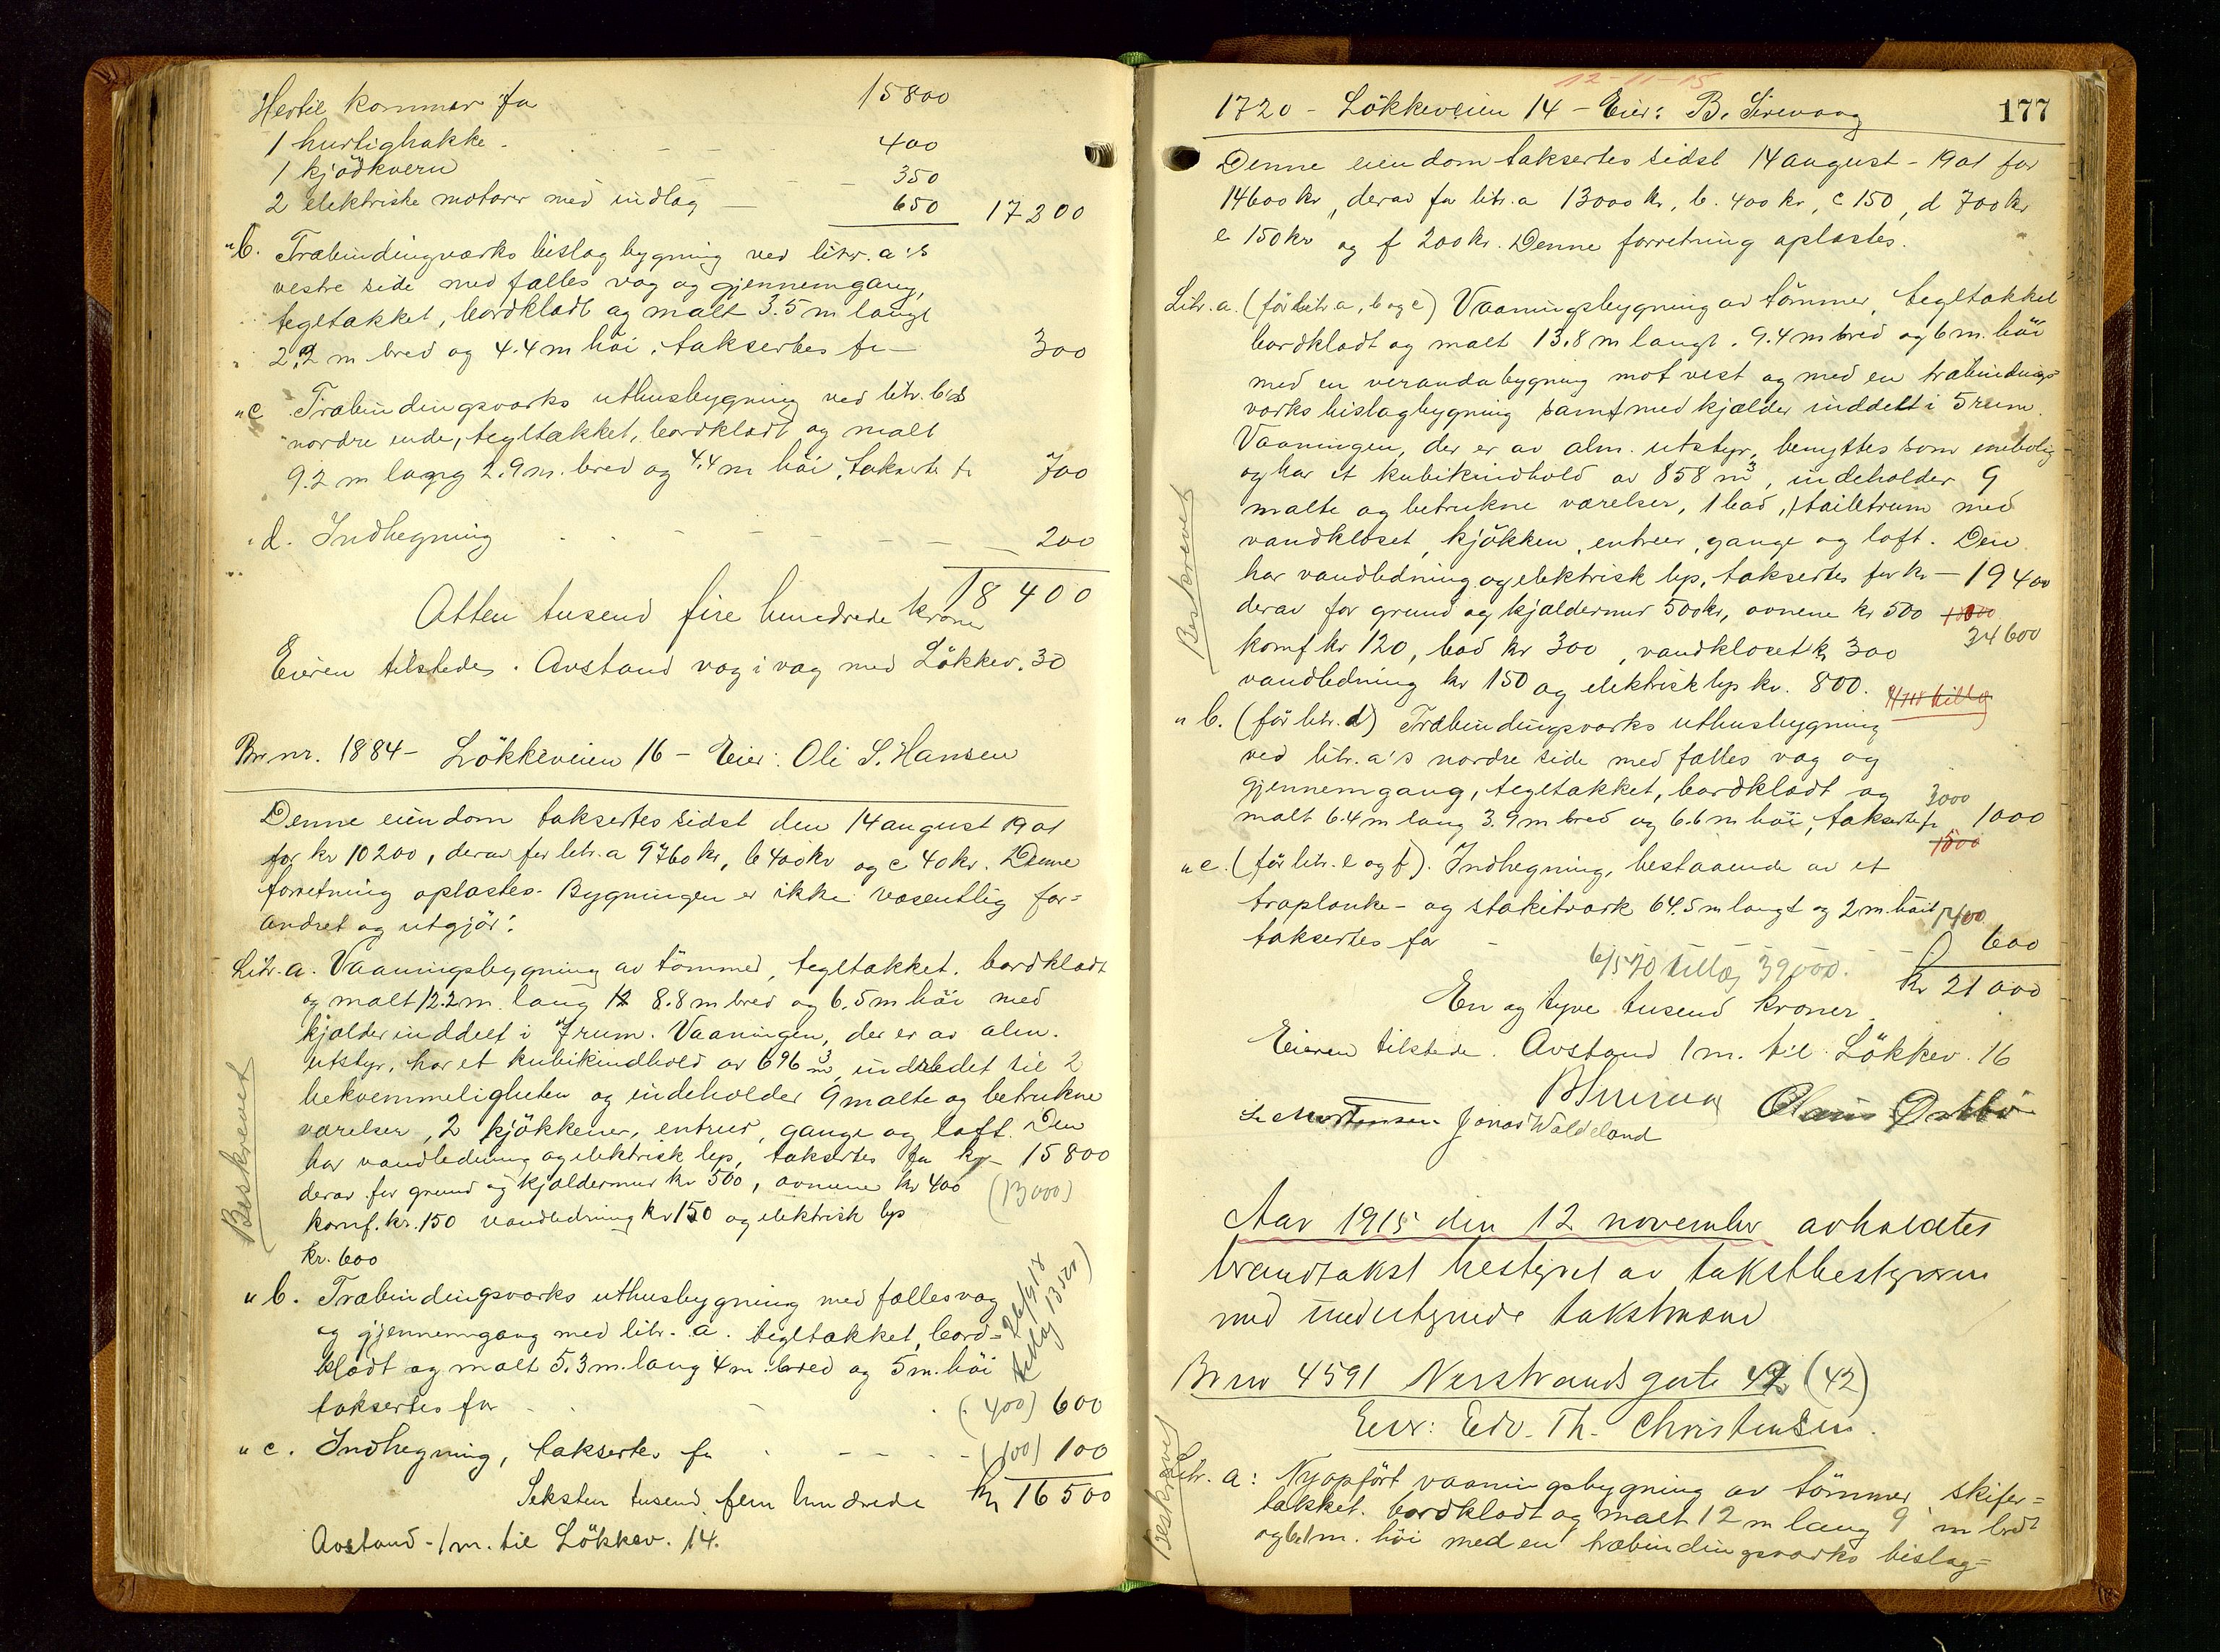 Hertil kommer for 15800
1 hurtighakke - 400
1 kjødkvern - 350
2 elektriske motorer med indlag - 650 17200
"b. Træbindingværks bislag bygning ved litr. a's
vestre side med fælles væg og gjennemgang,
tegltækket, bordklædt og malt 3.5 m langt
2.2 m bred og 4.4 m høi, taksertes for - 300
"c Træbindingsværks uthusbygning ved litr. b's
nordre ende, tegltækket, bordklædt og malt
9.2 m lang 2.9 m. bred og 4.4 m høi, taksertes for 700
"d. Indhegning 200
18400
Atten tusend fire hundrede kroner
Eieren tilstede. Avstand væg i væg med Løkkev. 30
Br. nr. 1884 - Løkkeveien 16 - Eier: Oli S. Hansen
Denne eiendom taksertes sidst den 14 august 1901
for kr 10200, derav for litr. a 9760 kr, b 400 kr og c 40 kr. Denne
forretning opløstes. Bygningen er ikke væsentlig for=
andret og utgjør:
Litr. a. Vaaningsbygning av tømmer, tegltækket, bordklædt
og malt 12.2 m. lang 8.8 m bred og 6.5 m høi med
kjælder inddelt i 7 rum. Vaaningen, der er av alm.
utstyr, har et kubikindhold av 696 m3, indredet til 2
bekvemmeligheter og indeholder 9 malte og betrukne
værelser, 2 kjøkkener, entreer, gange og loft. Den
har vandledning og elektrisk lys, taksertes for kr - 15800
derav for grund og kjældermur kr 500, ovnene kr 400 (13000)
komf. kr. 150 vandledning kr 150 og elektrisk lys
kr. 600
Beskrevet
"b. Træbindingsværks uthusbygning med fælles væg
og gjennemgang med litr. a. tegltækket, bord=
klædt og malt 5.3 m. lang 4 m. bred og 5 m. høi
26/9 18 tillæg 13500)
taksertes for (400) 600
"c. Indhegning, taksertes for - (100) 100
Seksten tusend fem hundrede kr 16500
Avstand - 1 m. til Løkkev. 14.
12-11-15
1720 - Løkkeveien 14 - Eier: B. Sirevaag 177
Denne eiendom taksertes sidst 14 august - 1901 for
14600 kr, derav for litr. a 13000 kr, b. 400 kr, c 150, d 700 kr
e 150 kr og f 200 kr. Denne forretning opløstes.
Litr. a. (før litr. a, b og c) Vaaningsbygning av tømmer, tegltækket
bordklædt og malt 13.8 m langt. 9.4 m bred og 6 m. høi
med en verandabygning mot vest og med en træbindings=
værks bislagbygning samt med kjælder inddelt i 5 rum.
Vaaningen, der er av alm. utstyr, benyttes som enebolig
og har et kubikindhold av 858 m3, indeholder 9
malte og betrukne værelser, 1 bad, 1 toiletrum med
vandkloset, kjøkken, entreer, gange og loft. Den
har vandledning og elektrisk lys, taksertes for kr - 19400
derav for grund og kjældermur 500 kr, ovnene kr 500
komf kr 120, bad kr 300, vandkloset kr 300 34600
vandledning kr 150 og elektrisk lys kr. 800.
Beskrevet
"b. (før litr. d) Træbindingsværks uthusbygning
ved litr. a's nordre side med fælles væg og
gjennemgang, tegltækket, bordklædt og 3000
malt 6.4 m lang 3.9 m bred og 6.6 m høi, taksertes for 1000
1500
"c. (før litr. e og f). Indhegning, bestaaende av et
træplanke- og stakitværk 64.5 m langt og 2 m. høit 1400
taksertes for - 600
6/5 20 tillæg 39000. kr 21000
En og tyve tusend kroner
Eieren tilstede. Avstand 1 m. til Løkkev. 16
B Sirevaag Claus Østbø
Jonas Waldeland
Aar 1915 den 12 november avholdtes
brandtakst bestyret av takstbestyreren
med undertegnede takstmænd
Br nr 4591 Nerstrandsgate 42 (42)
Eier: Edv. Th. Christensen.
Beskrevet
Litr. a: Nyopført vaaningsbygning av tømmer, skifer=
tækket. bordklædt og malt 12 m lang 9 m bred
og 6.1 m. høi med en træbindingsværks bislag=